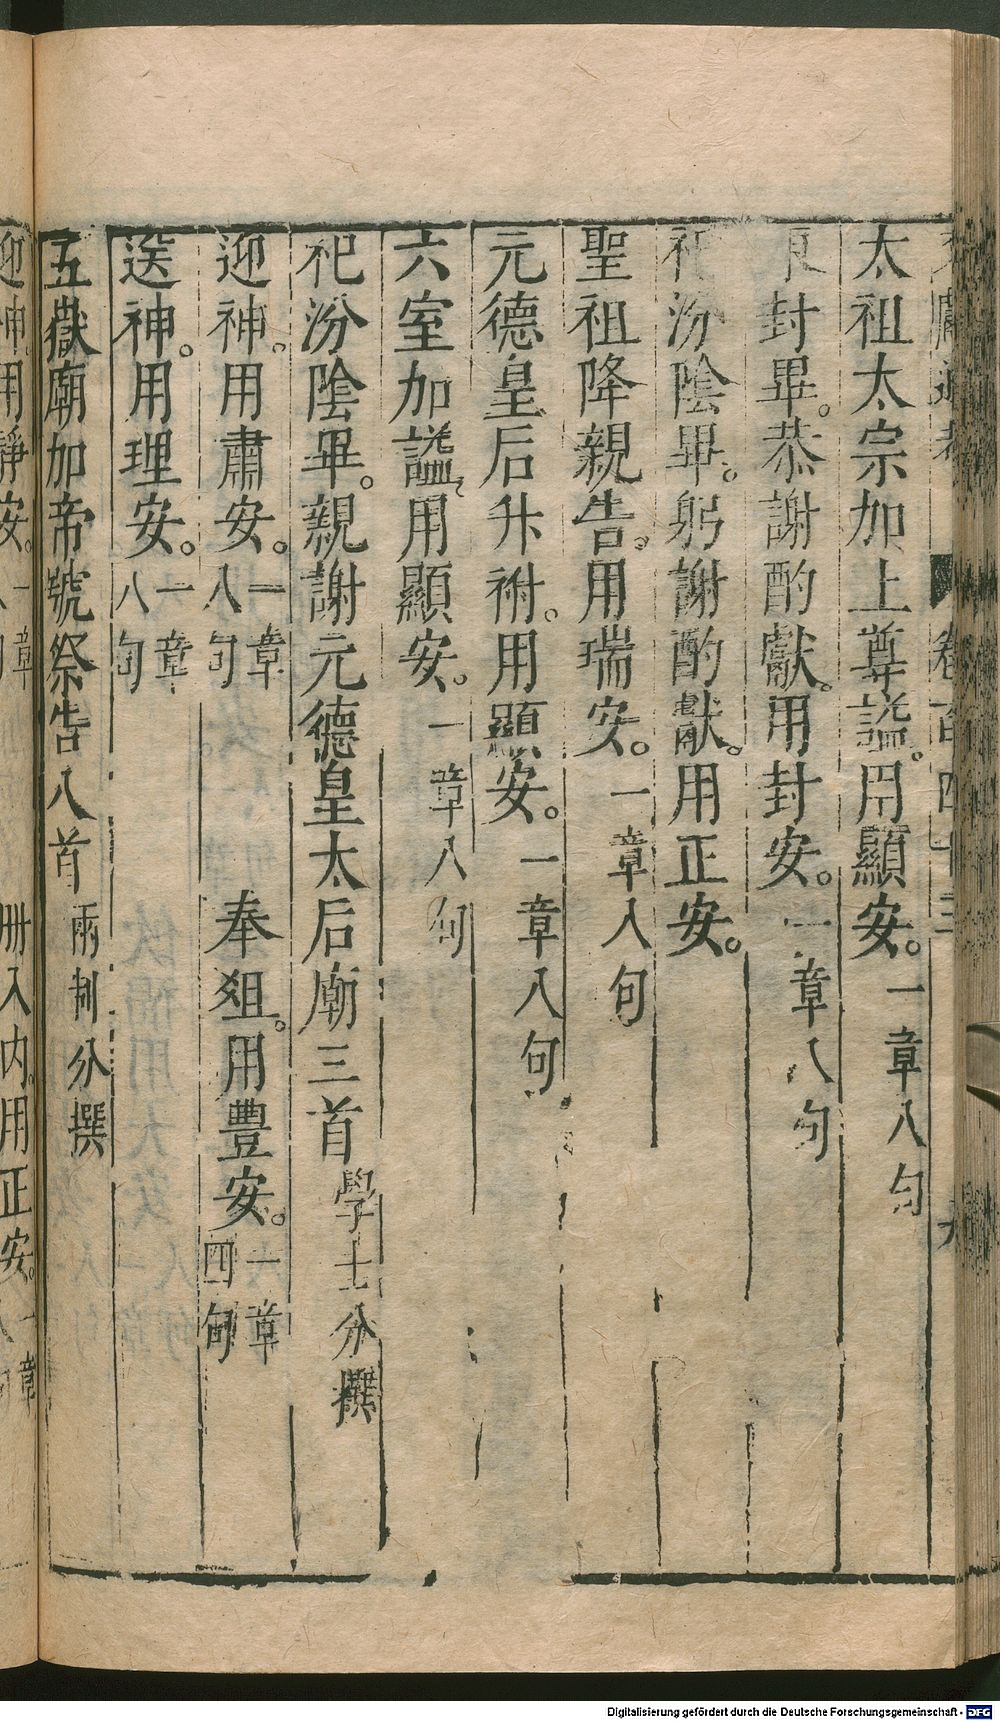 文獻通考 卷百四十三 九
太祖太宗加上尊謚。用顯安。一章八句
東封畢。恭謝酌獻。用封安。一章八句
祀汾陰畢。躬謝酌獻。用正安。
聖祖降親告。用瑞安。一章八句
元德皇后升祔。用顯安。一章八句。
六室加謚。用顯安。一章八句
祀汾陰畢。親謝元德皇太后廟三首學士分撰
迎神。用肅安。一章八句 奉俎。用豊安。一章四句
送神。用理安。一章八句
五嶽廟加帝號祭告八首 兩制分撰
迎神用靜安。一章八句 冊入內。用正安。一章
Digitalisierung gefördert durch die Deutsche Forschungsgemeinschaft - DFG